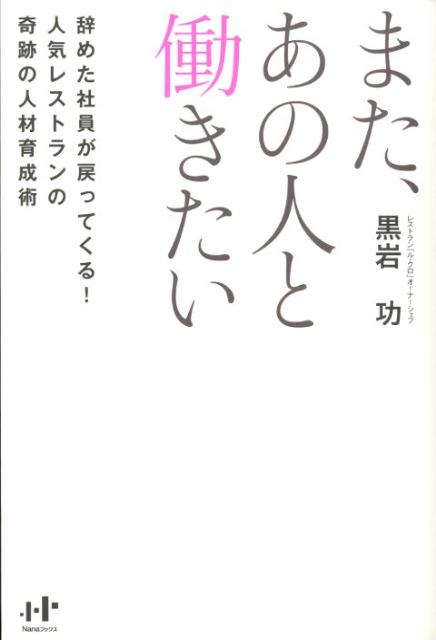 また、
あの人と
働きたい
レストラン「ル・クロ」オーナーシェフ
黒岩 功
辞めた社員が戻ってくる!
人気レストランの
奇跡の人材育成術
Nanaブックス